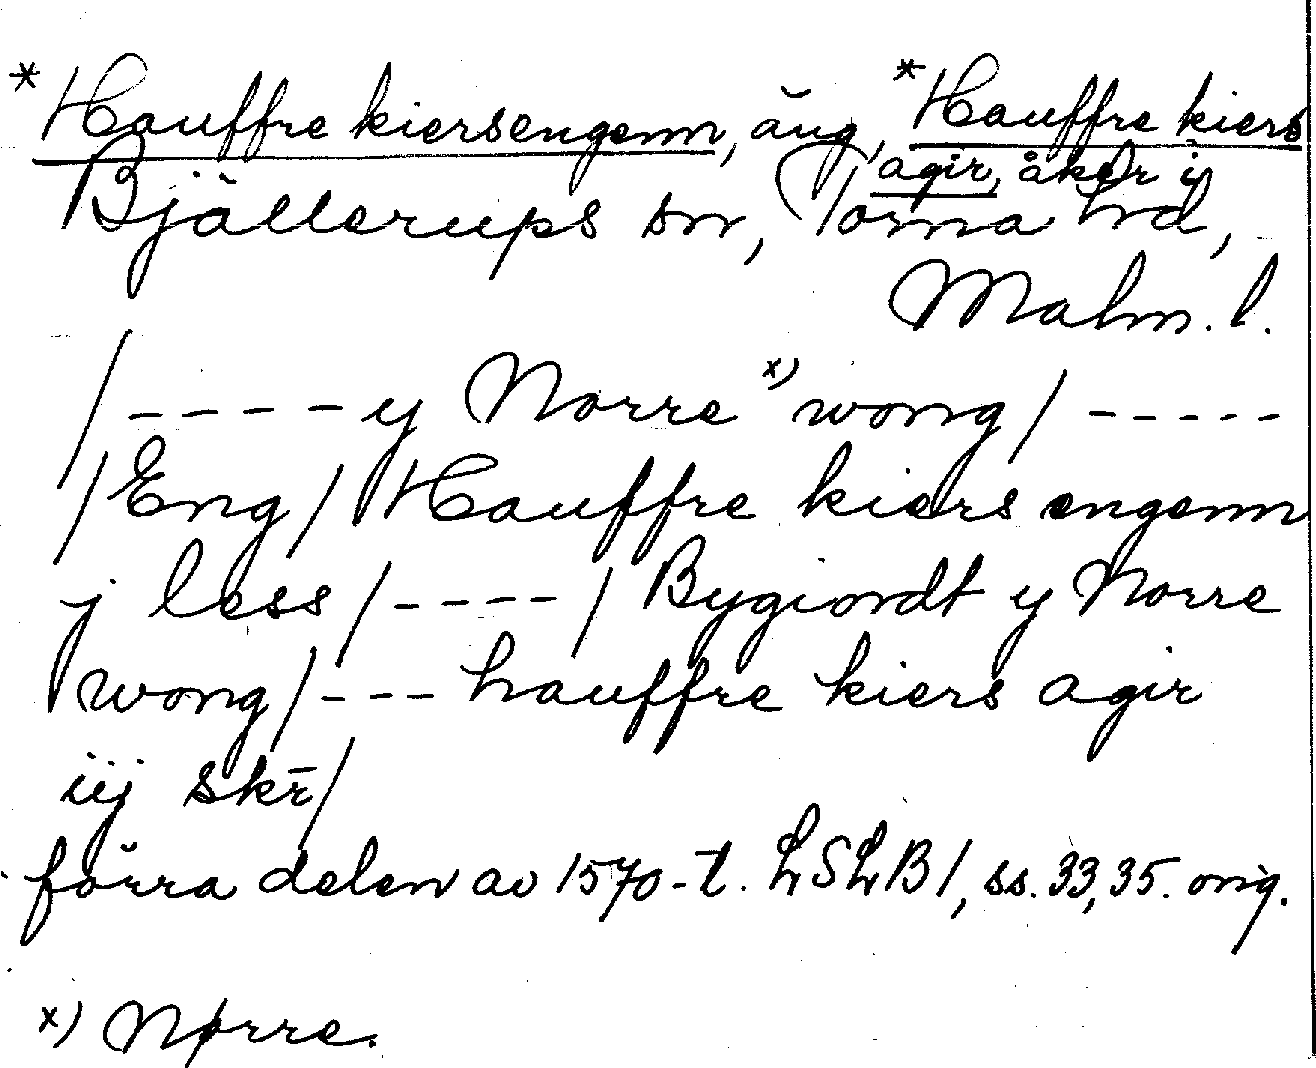 *Hauffre kiersengenn, äng, *Hauffre kiers
agir, åker i
Bjällerups sn, Torna hd,
Malm. l.
/ - - - - y Norre x) wong / - - - - -
/ Eng / Hauffre kiers engenn
j less / - - - - / Bygiordt y Norre
wong / - - - hauffre kiers agir
iij skr̄ /
förra delen av 1570-t. LSLB 1, ss. 33, 35. orig.
x) Nørre.